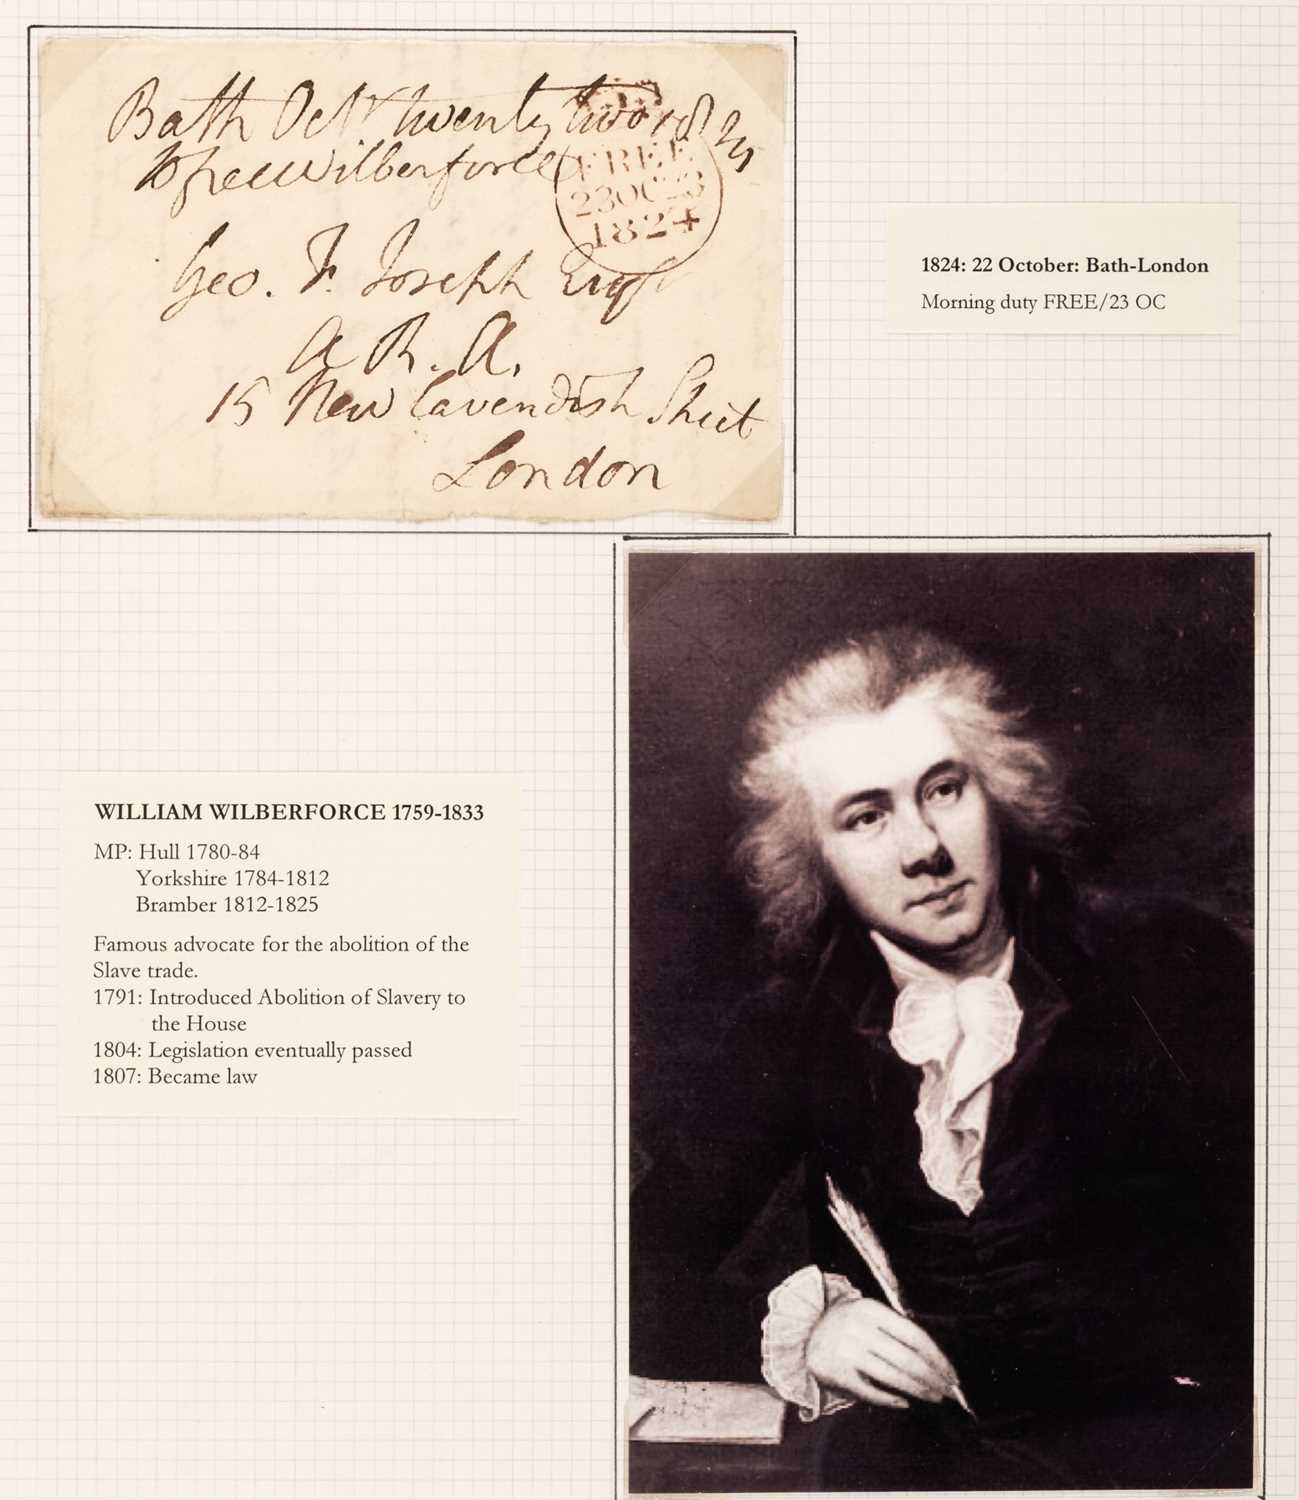 Bath Octr twenty two 1824
To free Wilberforce
FREE
23 OC 23
1824
Geo. F. Joseph Esqr
A R. A.
15 New Cavendish Street
London
1824: 22 October: Bath-London
Morning duty FREE/23 OC
WILLIAM WILBERFORCE 1759-1833
MP: Hull 1780-84
Yorkshire 1784-1812
Bramber 1812-1825
Famous advocate for the abolition of the
Slave trade.
1791: Introduced Abolition of Slavery to
the House
1804: Legislation eventually passed
1807: Became law